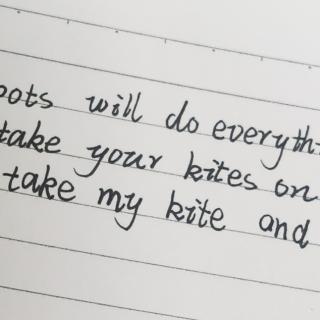 oots will do everyth
take your kites on
take my kite and